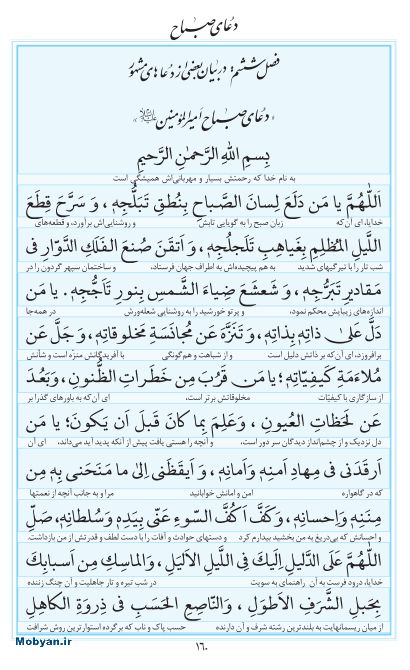 دعای صباح
فصل ششم: در بیان بعضی از دعاهای مشهور
«دعای صباح امیرالمؤمنین علیه‌السلام»
بِسمِ اللهِ الرَّحمٰنِ الرَّحیمِ
به نام خدا که رحمتش بسیار و مهربانی‌اش همیشگی است
اَللّٰهُمَّ یا مَن دَلَعَ لِسانَ الصَّباحِ بِنُطقِ تَبَلُّجِهِ، وَ سَرَّحَ قِطَعَ
خدایا، ای آن‌که زبان صبح را به گویایی تابش و روشنایی‌اش برآورد، و قطعه‌های
اللَّیلِ المُظلِمِ بِغَیاهِبِ تَلَجلُجِهِ، وَ اَتقَنَ صُنعَ الفَلَكِ الدَّوّارِ فی
شب تار را با تیرگی‌های شدید به هم پیچیده‌اش به اطراف جهان فرستاد، و ساختمان سپهر گردون را در
مَقادیرِ تَبَرُّجِهِ، وَ شَعشَعَ ضِیاءَ الشَّمسِ بِنورِ تَاَجُّجِهِ. یا مَن
اندازه‌های زیبایش محکم نمود، و پرتو خورشید را به روشنایی شعله‌ورش در همه‌جا
دَلَّ عَلیٰ ذاتِهِ بِذاتِهِ، وَ تَنَزَّهَ عَن مُجانَسَةِ مَخلوقاتِهِ، وَ جَلَّ عَن
برافروزد، ای آن‌که بر ذاتش دلیل است و از شباهت و هم‌گونگی با آفریدگانش منزّه است و شأنش
مُلاءَمَةِ کَیفِیّاتِهِ؛ یا مَن قَرُبَ مِن خَطَراتِ الظُّنونِ، وَ بَعُدَ
از سازگاری با کیفیّات مخلوقاتش برتر است، ای آن‌که به باورهای گذرا بر
عَن لَحَظاتِ العُیونِ، وَ عَلِمَ بِما کانَ قَبلَ اَن یَکونَ؛ یا مَن
دل نزدیک و از چشم‌انداز دیدگان سر دور است، و آنچه را هستی یافت پیش از آنکه پدید آید می‌داند، ای آن
اَرقَدَنی فی مِهادِ اَمنِهِ وَ اَمانِهِ، وَ اَیقَظَنی اِلیٰ ما مَنَحَنی بِهِ مِن
که در گاهواره امن و امانش خوابانید مرا و به جانب آنچه از نعمتها
مِنَنِهِ وَ اِحسانِهِ، وَ کَفَّ اَکُفَّ السّوءِ عَنّی بِیَدِهِ وَ سُلطانِهِ، صَلِّ
و احسانش که بی‌دریغ به من بخشید بیدارم کرد و دستهای حوادث و آفات را با دست لطف و قدرتش از من بازداشت.
اللّٰهُمَّ عَلَی الدَّلیلِ اِلَیكَ فِی اللَّیلِ الاَلیَلِ، وَ الماسِكِ مِن اَسبابِكَ
خدایا، درود فرست به آن راهنمای به سویت در شب تیره و تار جاهلیت و آن چنگ زننده
بِحَبلِ الشَّرَفِ الاَطوَلِ، وَ النّاصِعِ الحَسَبِ فی ذِروَةِ الکاهِلِ
از میان ریسمانهایت به بلندترین رشته شرف و آن دارنده حسب پاک و ناب که بر گرده استوارترین روش شرافت
۱۶۰
Mobyan.ir